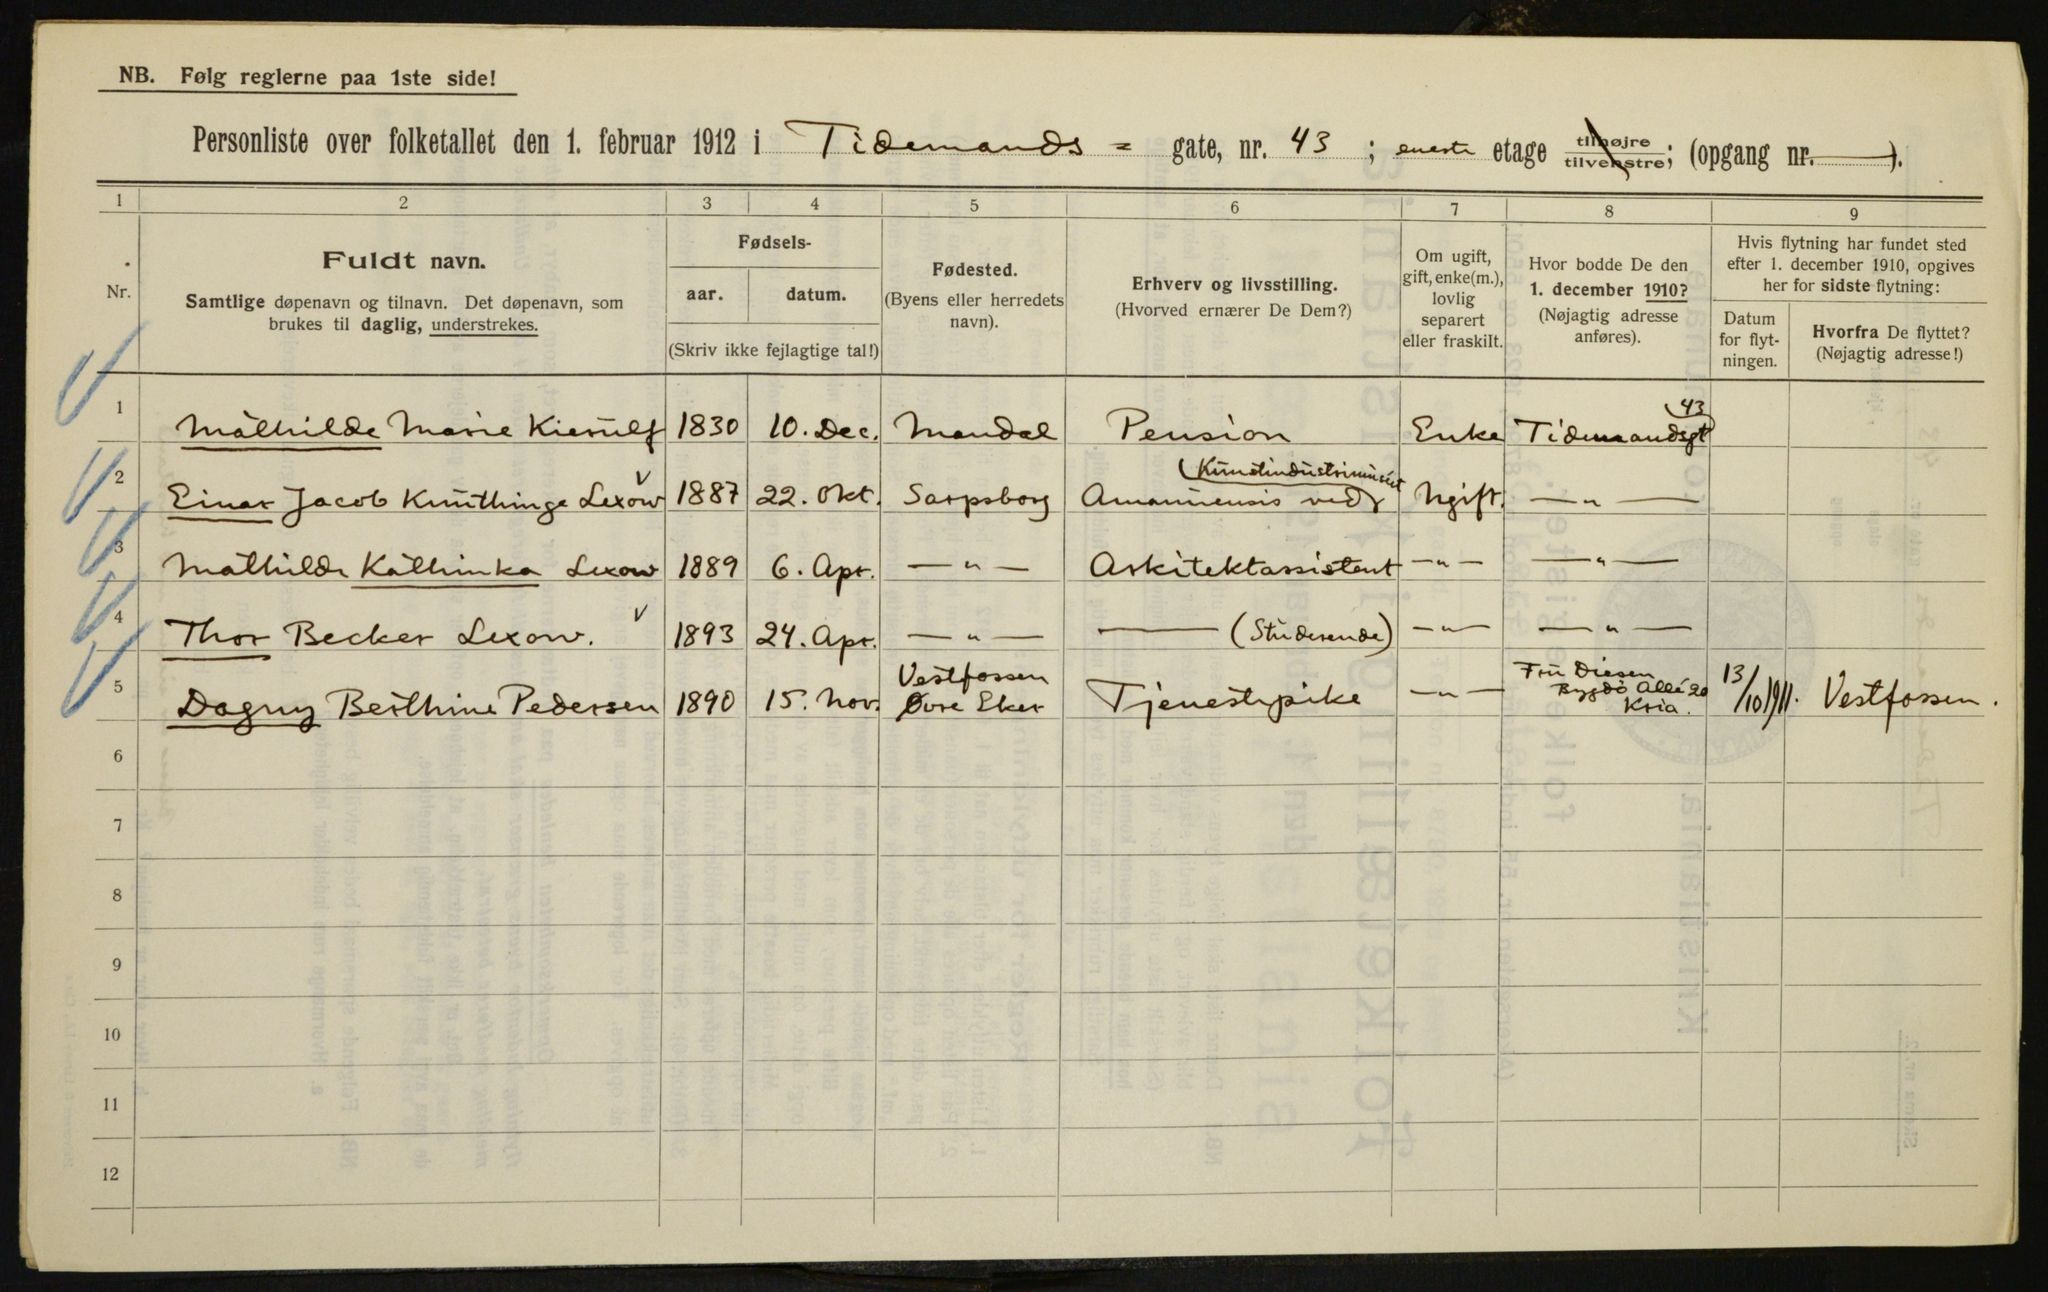 NB. Følg reglerne paa 1ste side!
Personliste over folketallet den 1. februar 1912 i Tidemands = gate, nr. 43 ; eneste etage tilhøjre tilvenstre; (opgang nr. —).
1 2 3 4 5 6 7 8 9
Nr.
Fuldt navn.
Samtlige døpenavn og tilnavn. Det døpenavn, som
brukes til daglig, understrekes.
Fødsels-
aar. datum.
(Skriv ikke fejlagtige tal!)
Fødested.
(Byens eller herredets
navn).
Erhverv og livsstilling.
(Hvorved ernærer De Dem?)
Om ugift,
gift, enke(m.),
lovlig
separert
eller fraskilt.
Hvor bodde De den
1. december 1910?
(Nøjagtig adresse
anføres).
Hvis flytning har fundet sted
efter 1. december 1910, opgives
her for sidste flytning:
Datum
for flyt-
ningen.
Hvorfra De flyttet?
(Nøjagtig adresse!)
1 Mathilde Marie Kierulf 1830 10. Dec. Mandal Pension Enke Tidemandsgt 43
2 Einar Jacob Knuthinge Lexow 1887 22. Okt. Sarpsborg Amanuensis ved Kunstindustrimuseet Ugift. — " —
3 Mathilde Kathinka Lexow 1889 6. Apr. — " — Arkitektassistent — " — — " —
4 Thor Becker Lexow. 1893 24. Apr. — " — — (Studerende) — " — — " —
5 Dagny Berthine Pedersen 1890 15. Nov. Vestfossen Øvre Eker Tjenestepike — " — Fru Diesen Bygdö Allé 20 Kria. 13/10 1911. Vestfossen.
6
7
8
9
10
11
12